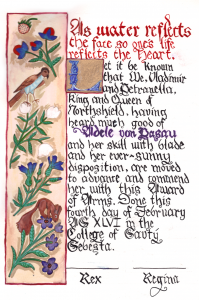 As water reflects
the face, so one's life
reflects the heart.
Let it be known
that We, Vladimir
and Petranella,
King and Queen of
Northshield, having
heard much good of
Adele von
and her skill with blade
and her ever-sunny
disposition, are moved
to advance and commend
her with this Award
of Arms. Done this
fourth day of February
AS XLVI in the
College of
Rex Regina